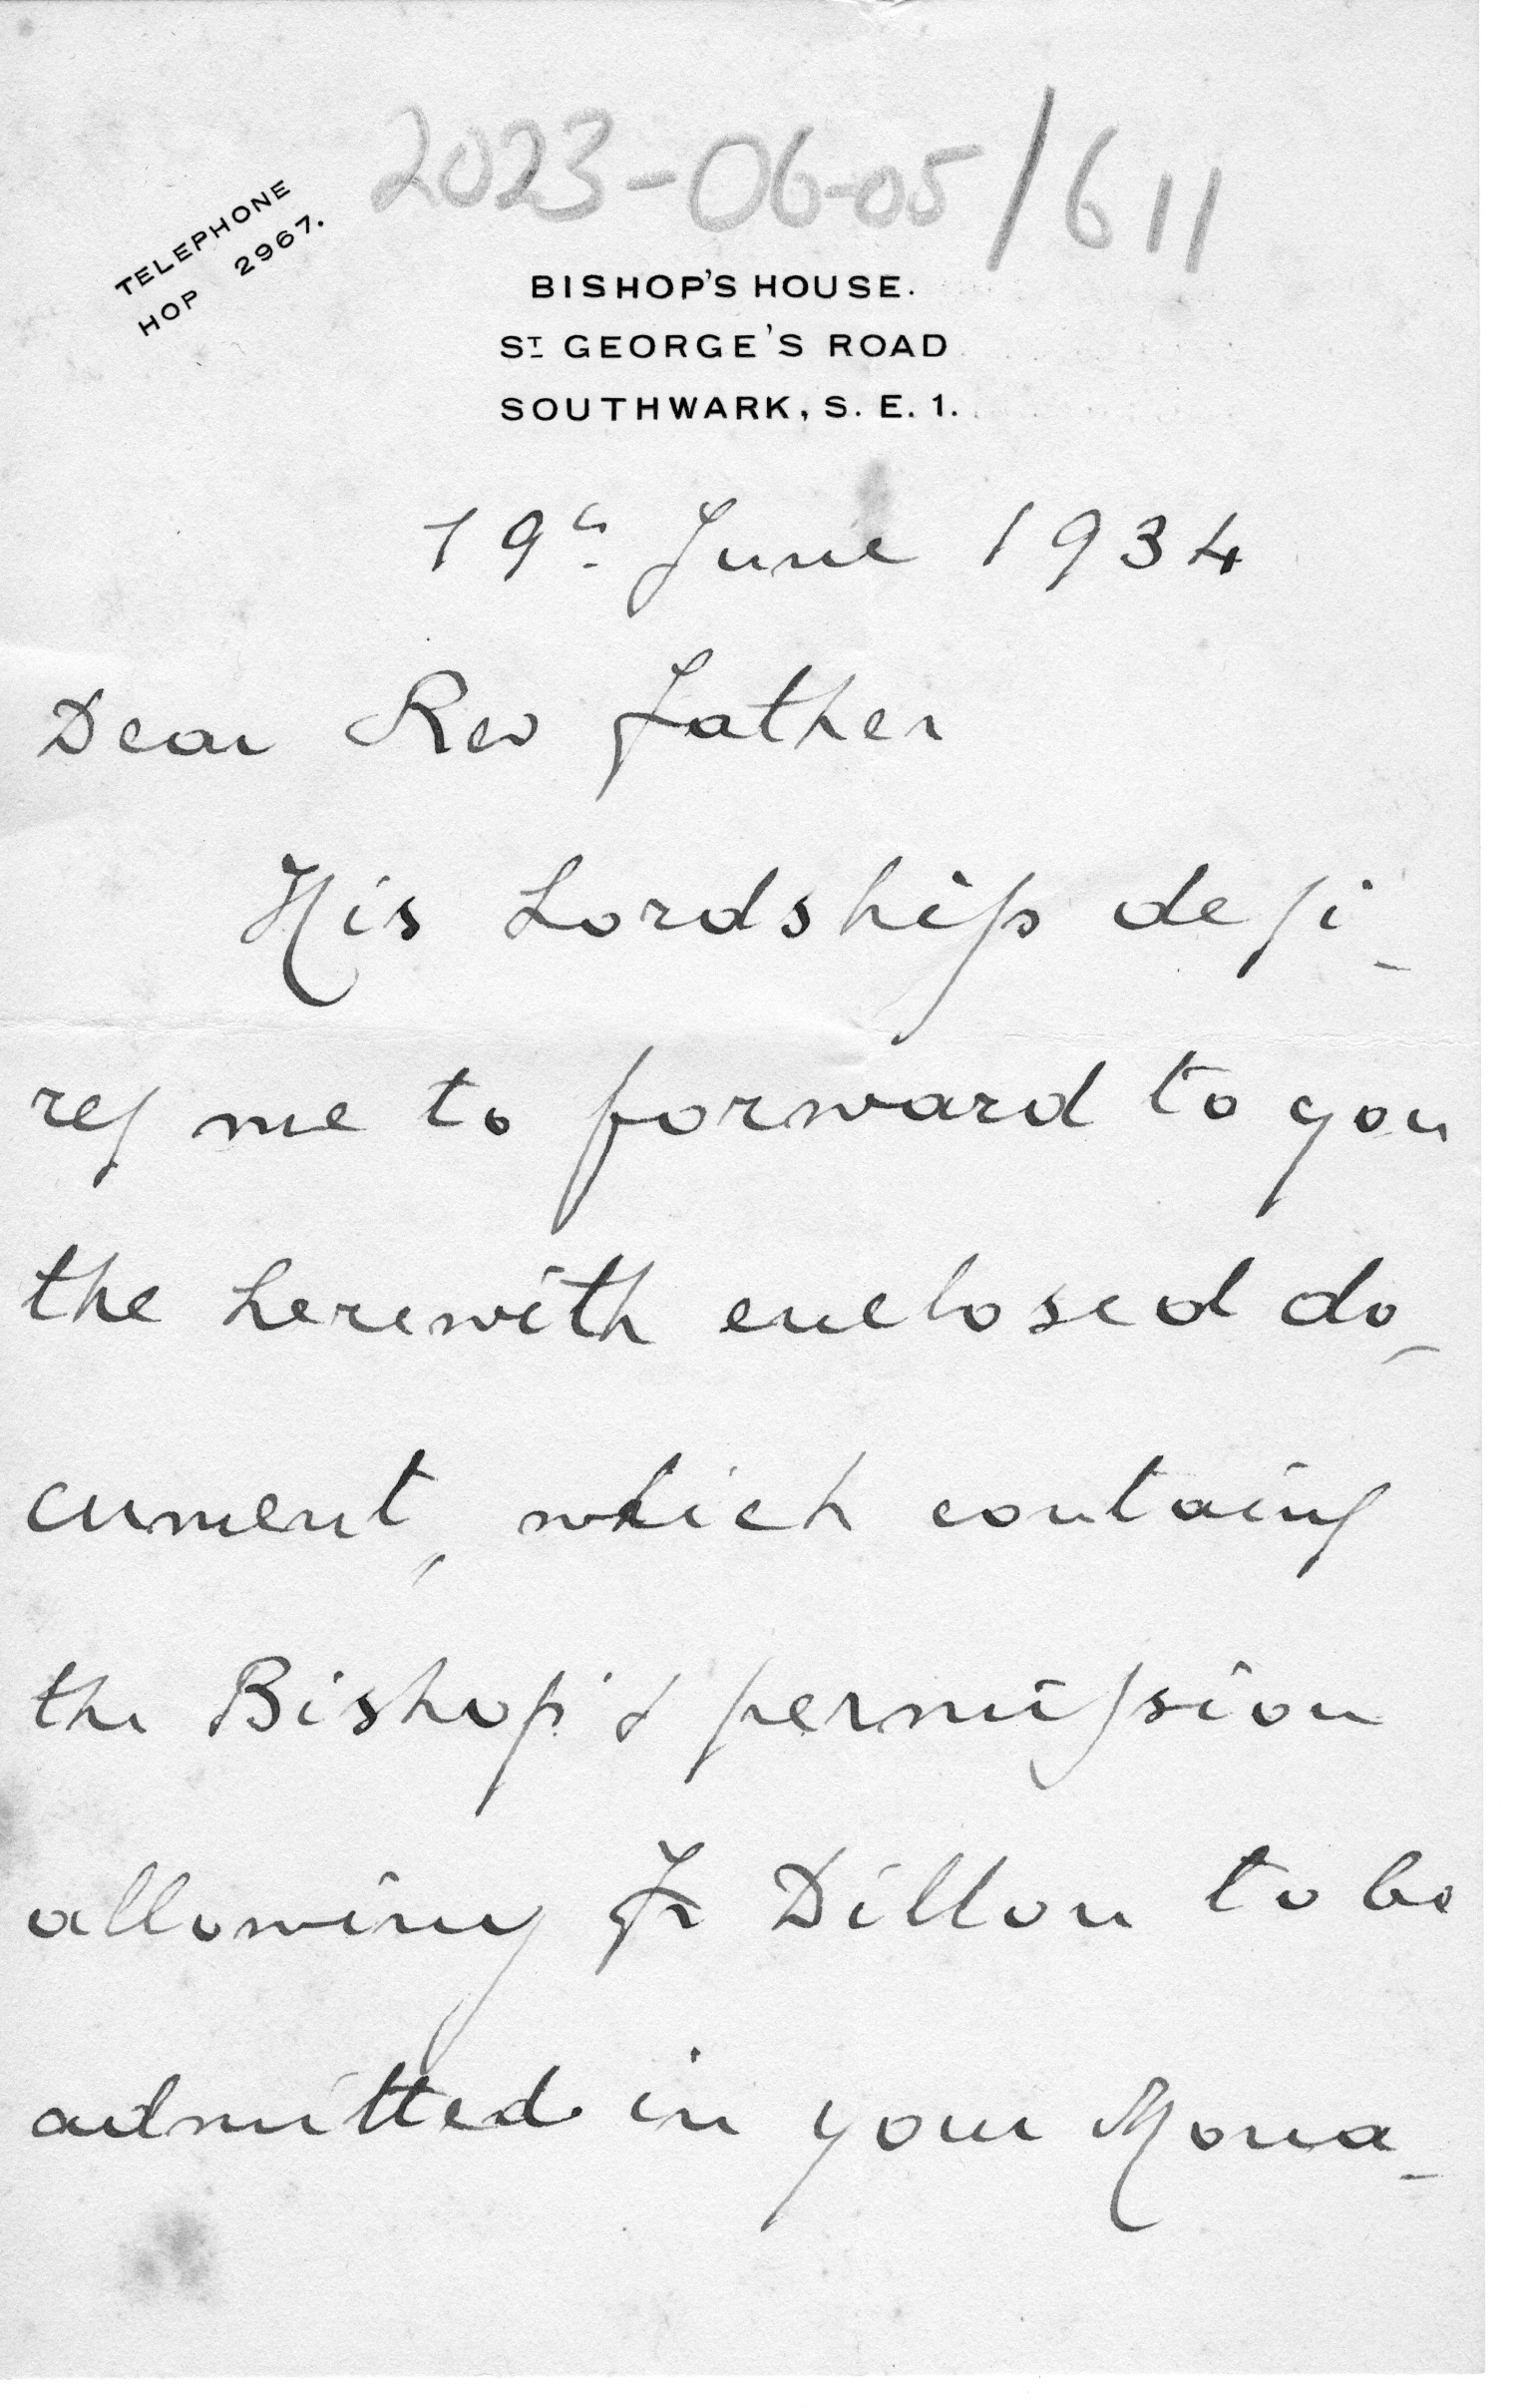 2023-06-05/611
TELEPHONE
HOP 2967.
BISHOP'S HOUSE.
ST GEORGE'S ROAD
SOUTHWARK, S. E. 1.
19th June 1934
Dear Rev Father
His Lordship desi-
res me to forward to you
the herewith enclosed do-
cument, which contains
the Bishop's permission
allowing Fr Dillon to be
admitted in your Mona-